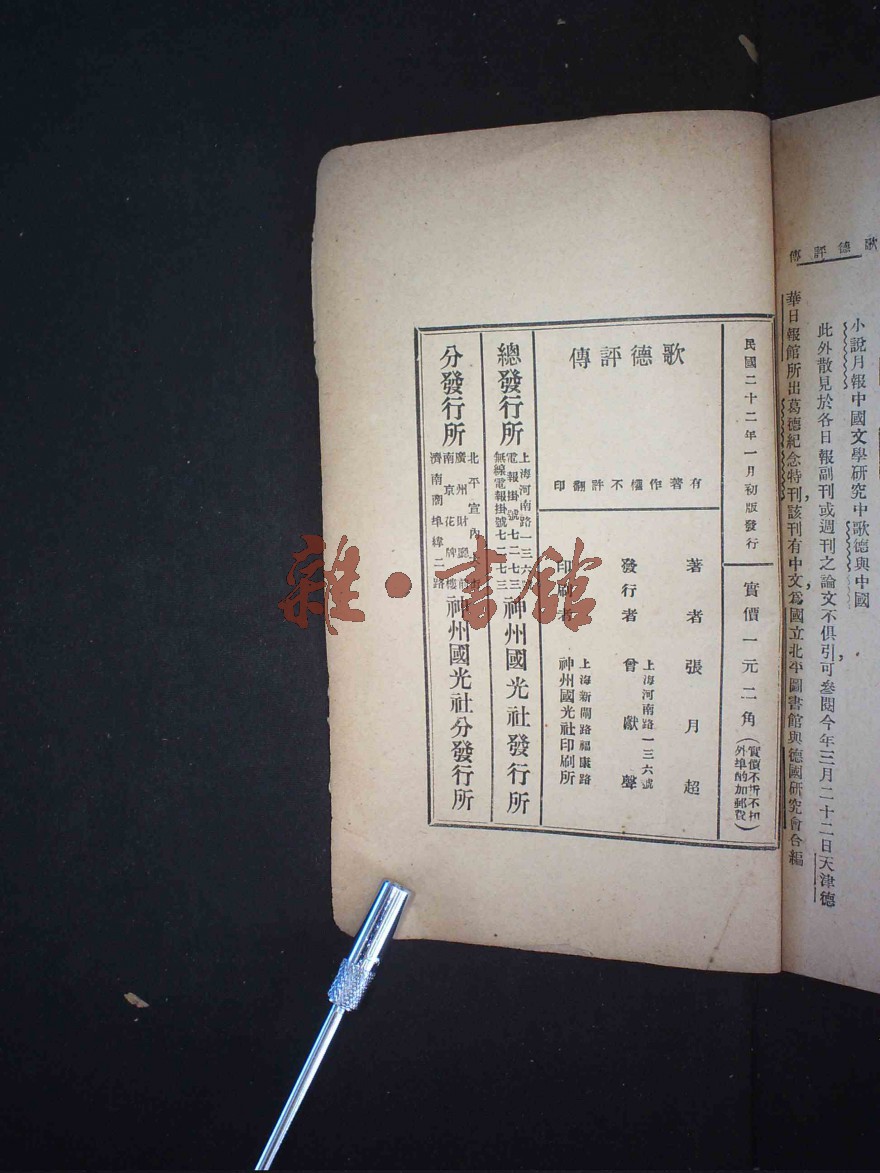 歌德評傳
小說月報中國文學研究中歌德與中國
此外散見於各日報副刊或週刊之論文不俱引可參閱今年三月二十二日天津德
華日報館所出葛德紀念特刊,該刊有中文,爲國立北平圖書館與德國研究會合編
民國二十二年一月初版發行
實價一元二角
(實價不折不扣
外埠酌加郵費)
歌德評傳
有著作權不許翻印
著者 張月超
發行者 曾獻聲
上海河南路一三六號
印刷者 神州國光社印刷所
上海新閘路福康路
總發行所
上海河南路一三六號
電報掛號七二七三
無線電報掛號七二七三
神州國光社發行所
分發行所
北平宣內大街
廣州財廳前
南京花牌樓
濟南商埠緯二路
神州國光社分發行所
雜·書館